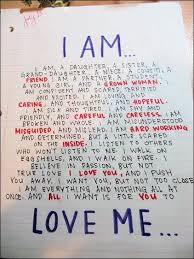 I AM...
I AM, A DAUGHTER, A SISTER, A
GRAND-DAUGHTER, A NIECE, A COUSIN, A
FRIEND. I AM A PARTNER, A STUDENT,
A YOUNG GIRL, AND A GROWN WOMAN.
I AM CONFIDENT AND SCARED, TERRIFIED
AND EXCITED. I AM LOVING AND
CARING, AND THOUGHTFUL, AND HOPEFUL.
I AM SICK AND TIRED, I AM SHY
AND FRIENDLY, AND CAREFUL AND CARELESS. I AM
BROKEN AND WHOLE. I AM MISUNDERSTOOD
MISGUIDED, AND MISLEAD. I AM HARD WORKING
AND DETERMINED, BUT A LITTLE SCARED
ON THE INSIDE. I LISTEN TO OTHERS
WHO WON'T LISTEN TO ME. I WALK ON
EGGSHELLS, AND I WALK ON FIRE. I
BELIEVE IN PASSION, BUT NOT
TRUE LOVE. I LOVE YOU, AND I PUSH
YOU AWAY, I WANT YOU, BUT NOT TOO CLOSE.
I AM EVERYTHING AND NOTHING ALL AT
ONCE. AND ALL I WANT IS FOR YOU TO
LOVE ME...